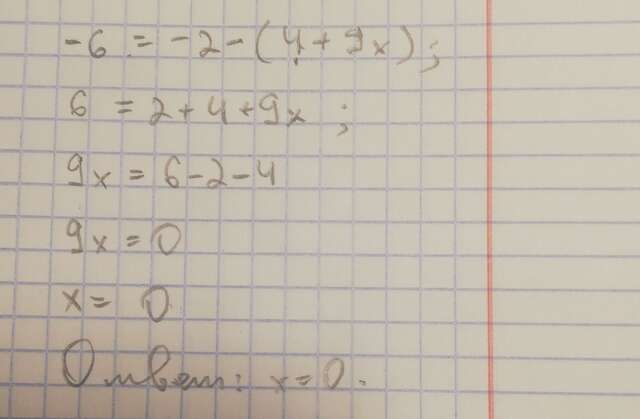 -6 = -2-(4+9x);
6 = 2+4+9x ;
9x = 6-2-4
9x = 0
x = 0
Ответ: x=0.